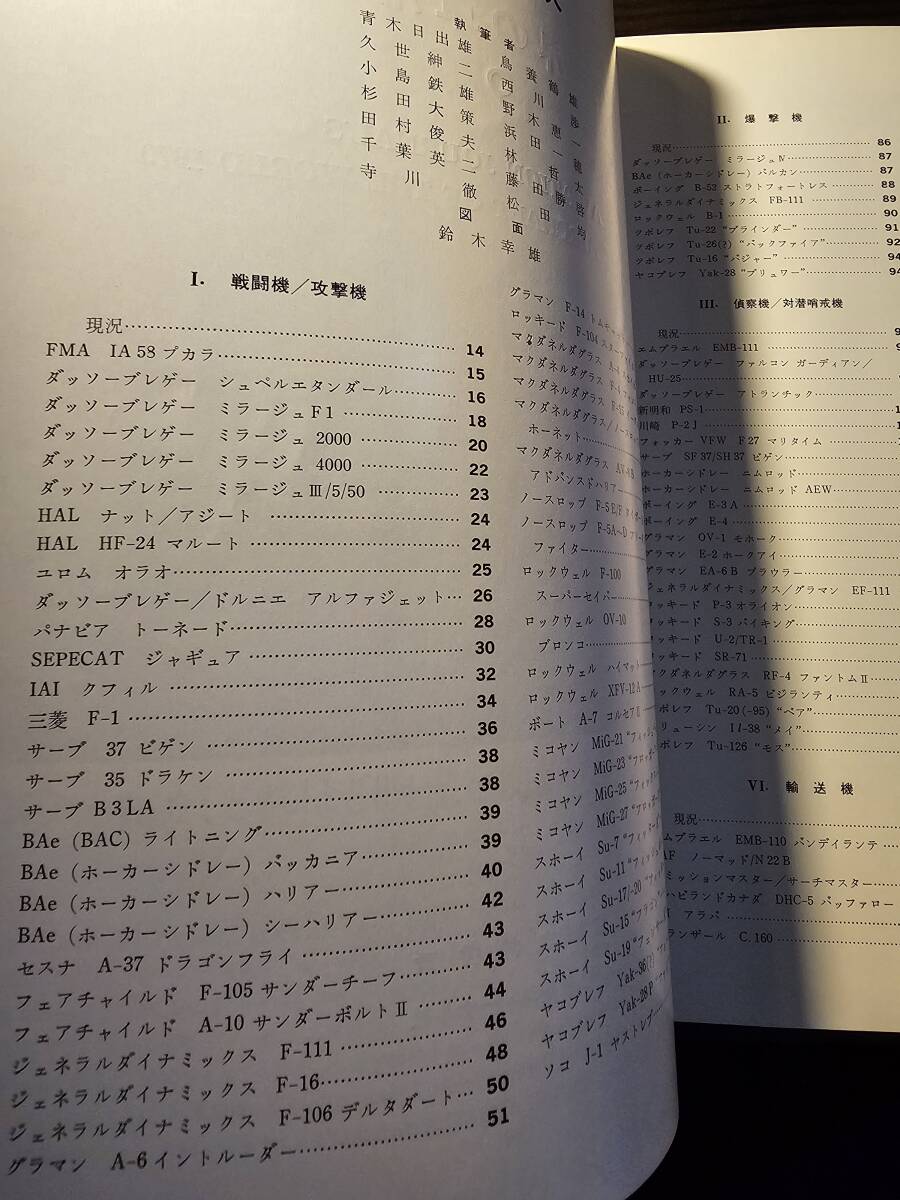 執筆者
青木日出雄　鳥養鶴雄
久世紳二　西川渉
小島鉄雄　野木恵一
杉田大策　浜田一穂
田村俊夫　林哲太
千葉英二　藤田勝啓
寺川徹　松田均
図面
鈴木幸雄
I. 戦闘機／攻撃機
現況 14
FMA IA 58 プカラ 15
ダッソーブレゲー シュペルエタンダール 16
ダッソーブレゲー ミラージュF1 18
ダッソーブレゲー ミラージュ 2000 20
ダッソーブレゲー ミラージュ 4000 22
ダッソーブレゲー ミラージュⅢ/5/50 23
HAL ナット／アジート 24
HAL HF-24 マルート 24
ユロム オラオ 25
ダッソーブレゲー／ドルニエ アルファジェット 26
パナビア トーネード 28
SEPECAT ジャギュア 30
IAI クフィル 32
三菱 F-1 34
サーブ 37 ビゲン 36
サーブ 35 ドラケン 38
サーブ B3LA 38
BAe (BAC) ライトニング 39
BAe (ホーカーシドレー) バッカニア 39
BAe (ホーカーシドレー) ハリアー 40
BAe (ホーカーシドレー) シーハリアー 42
セスナ A-37 ドラゴンフライ 43
フェアチャイルド F-105 サンダーチーフ 43
フェアチャイルド A-10 サンダーボルトⅡ 44
ジェネラルダイナミックス F-111 46
ジェネラルダイナミックス F-16 48
ジェネラルダイナミックス F-106 デルタダート 50
グラマン A-6 イントルーダー 51
グラマン F-14
ロッキード F-104
マクダネルダグラス A-4
マクダネルダグラス F-4
マクダネルダグラス F-15
マクダネルダグラス／ノースロップ
ホーネット
マクダネルダグラス AV-8B
アドバンスドハリアー
ノースロップ F-5E/F
ノースロップ F-5A~D
ファイター
ロックウェル F-100
スーパーセイバー
ロックウェル OV-10
ブロンコ
ロックウェル ハイマット
ロックウェル XFV-12A
ボート A-7 コルセアⅡ
ミコヤン MiG-21
ミコヤン MiG-23
ミコヤン MiG-25
ミコヤン MiG-27
スホーイ Su-7
スホーイ Su-11
スホーイ Su-17/-20
スホーイ Su-15
スホーイ Su-19
ヤコブレフ Yak-36(?)
ヤコブレフ Yak-28P
ソコ J-1 ヤストレブ
II. 爆撃機
現況 86
ダッソーブレゲー ミラージュⅣ 87
BAe (ホーカーシドレー) バルカン 87
ボーイング B-52 ストラトフォートレス 88
ジェネラルダイナミックス FB-111 89
ロックウェル B-1 90
ツポレフ Tu-22 “ブラインダー” 91
ツポレフ Tu-26(?) “バックファイア” 92
ツポレフ Tu-16 “バジャー” 94
ヤコブレフ Yak-28 “ブリュワー” 94
III. 偵察機／対潜哨戒機
現況
エムブラエル EMB-111
ダッソーブレゲー ファルコン ガーディアン／
HU-25
ダッソーブレゲー アトランチック
新明和 PS-1
川崎 P-2J
フォッカー VFW F27 マリタイム
サーブ SF37/SH37 ビゲン
ホーカーシドレー ニムロッド
ホーカーシドレー ニムロッド AEW
ボーイング E-3A
ボーイング E-4
グラマン OV-1 モホーク
グラマン E-2 ホークアイ
グラマン EA-6B プラウラー
ジェネラルダイナミックス／グラマン EF-111
ロッキード P-3 オライオン
ロッキード S-3 バイキング
ロッキード U-2/TR-1
ロッキード SR-71
マクダネルダグラス RF-4 ファントムⅡ
ロックウェル RA-5 ビジランティ
ツポレフ Tu-20 (-95) “ベア”
イリューシン Il-38 “メイ”
ツポレフ Tu-126 “モス”
VI. 輸送機
現況
エムブラエル EMB-110 バンデイランテ
AF ノーマッド/N22B
ミッションマスター／サーチマスター
ハビランドカナダ DHC-5 バッファロー
アラバ
ランザール C.160